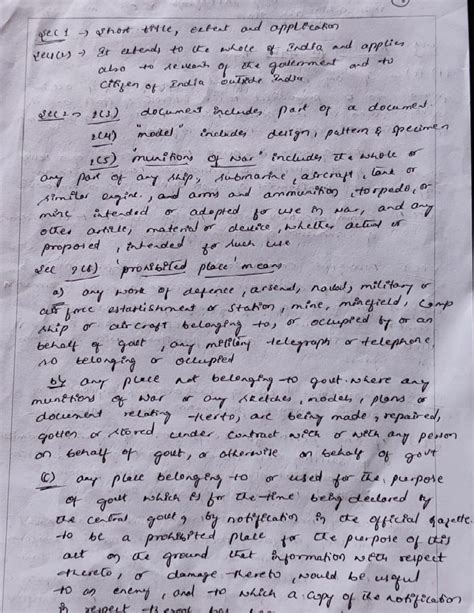 Sec 1 → Short title, extent and application
Sec 1(2) → It extends to the whole of India and applies
also to servants of the government and to
citizen of India outside India
Sec 2 → 2(3) document includes part of a document
2(4) "model" includes design, pattern & specimen
2(5) "munitions of war" includes the whole or
any part of any ship, submarine, aircraft, tank or
similar engine, and arms and ammunition, torpedo, or
mine intended or adopted for use in war, and any
other article, material or device, whether actual or
proposed, intended for such use
Sec 2(8) 'prohibited place' means
a) any work of defence, arsenal, naval, military or
air force establishment or station, mine, minefield, camp
ship or aircraft belonging to, or occupied by or on
behalf of govt, any military telegraph or telephone,
so belonging or occupied
b) any place not belonging to govt where any
munitions of war or any sketches, models, plans or
document relating thereto, are being made, repaired,
gotten or stored under contract with or with any person
on behalf of govt, or otherwise on behalf of govt
(c) any place belonging to or used for the purpose
of govt which is for the time being declared by
the central govt, by notification in the official gazette
to be a prohibited place for the purpose of this
act on the ground that information with respect
thereto, or damage thereto, would be useful
to an enemy, and to which a copy of the notification
in respect thereof has been